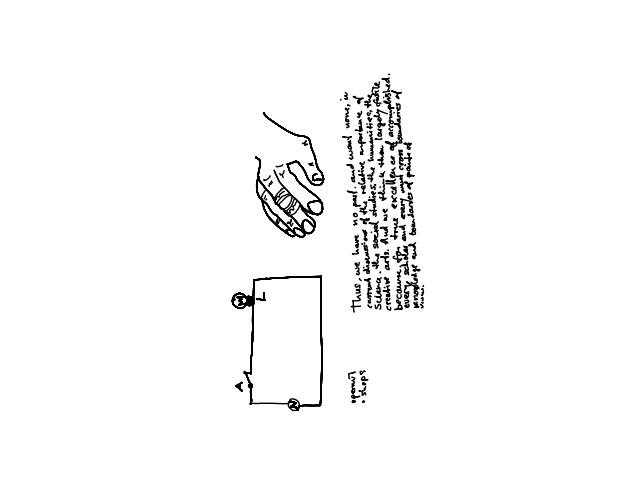 Thus, we have no part, and want none, in
current discussions of the relative importance of
Science, the social studies, the humanities, the
creative arts. And we think them largely futile
because, for true excellence of accomplished
every scholar and every must cross boundaries of
knowledge and boundaries of points of
view.
A
L
N
• shops